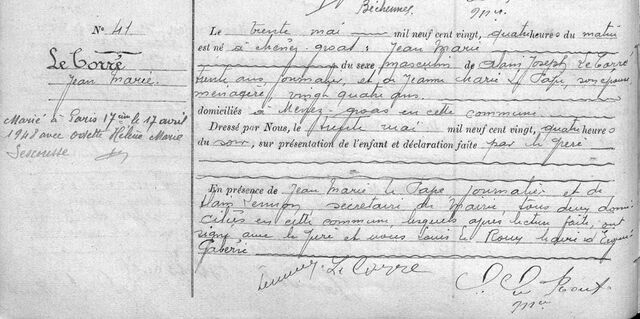 Nº 41
Le Corré
Jean Marie
Marié à Paris 17ème le 17 avril
1948 avec Odette Hélène Marie
Lescousse
Le trente mai mil neuf cent vingt, quatre heures du matin
est né à Menez-groas : Jean Marie
du sexe masculin de Alain Joseph Le Corré
trente ans journalier, et de Jeanne Marie Le Pape, son épouse
ménagère vingt quatre ans
domiciliés à Menez-groas en cette commune
Dressé par Nous, le trente mai mil neuf cent vingt, quatre heures
du soir, sur présentation de l'enfant et déclaration faite par le père
En présence de Jean Marie Le Pape journalier et de
Alain secrétaire de Mairie tous deux domi-
ciliés en cette commune lesquels après lecture faite, ont
signé avec le père et nous Louis Le Rouy maire d'Ergué-
Gabéric
Le Corre